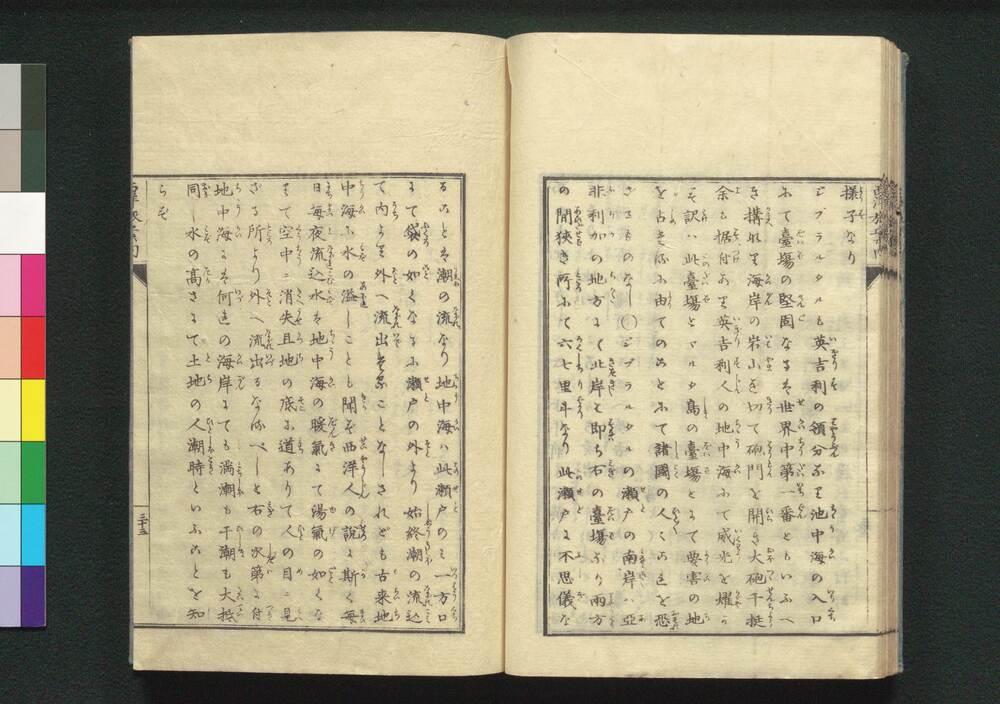 様子なり
ジブラルタルも英吉利の領分なり地中海の入口
にて臺塲の堅固なるは世界中第一番ともいふべ
き構なり海岸の岩山を切て砲門を開き大砲千挺
余も据付あり英吉利人の地中海にて威光を燿か
す訳ハ此臺塲とマルタ島の臺塲とにて要害の地
を占たるに由てのことにて諸國の人〻これを恐
ざるものなし〇ジブラルタルの瀬戸の南岸ハ亞
非利加の地方にて北岸は即ち右の臺塲なり両方
の間狹き所にて六七里斗なり此瀬戸に不思儀な
ることは潮の流なり地中海ハ此瀬戸のミ一方口
にて袋の如くなるに瀬戸の外より始終潮の流込
て内より外へ流出ることなしされども古来地
中海に水の溢しことも聞ず西洋人の説に斯く毎
日毎夜流込水は地中海の暖氣にて湯氣の如くな
りて空中ニ消失且地の底に道ありて人の目ニ見
ざる所より外へ流出るなるべしと右の次第ニ付
地中海にては何れの海岸にても満潮も干潮も大抵
同し水の高さにて土地の人潮時といふことを知
らず
三十三